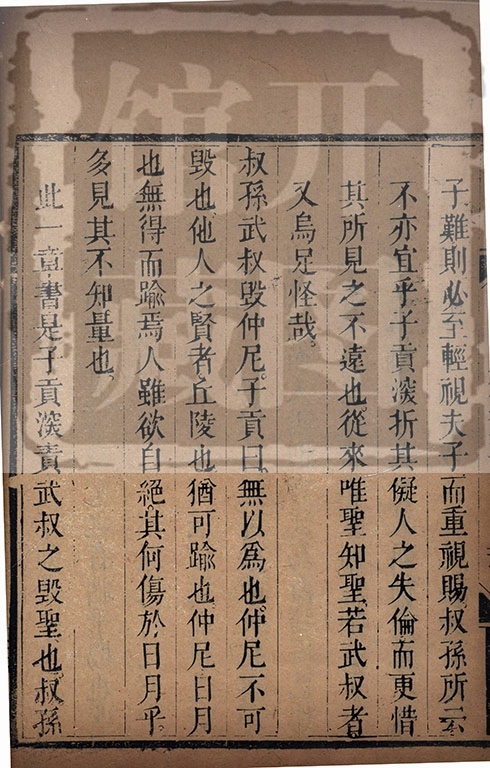 子難則必至輕視夫子而重視賜叔孫所云
不亦宜乎子貢深折其儗人之失倫而更惜
其所見之不遠也從來唯聖知聖若武叔者
又烏足怪哉
叔孫武叔毀仲尼子貢曰無以為也仲尼不可
毀也他人之賢者丘陵也猶可踰也仲尼日月
也無得而踰焉人雖欲自絕其何傷於日月乎
多見其不知量也
此一章書是子貢深責武叔之毀聖也叔孫